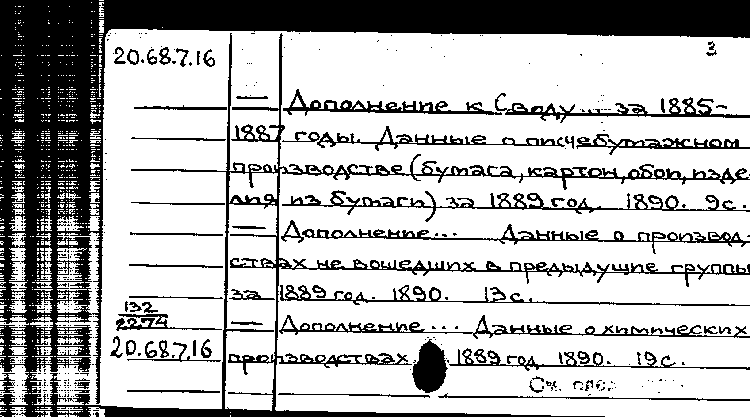 3
20.68.7.16
— Дополнение к Своду... за 1885-
1887 годы. Данные о писчебумажном
производстве (бумага, картон, обои, изде-
лия из бумаги) за 1889 год. 1890. 9с.
— Дополнение... Данные о производ-
ствах не вошедших в предыдущие группы
за 1889 год. 1890. 13с.
132
2274
— Дополнение... Данные о химических
20.68.7.16
производствах 1889 год. 1890. 19с.
См.